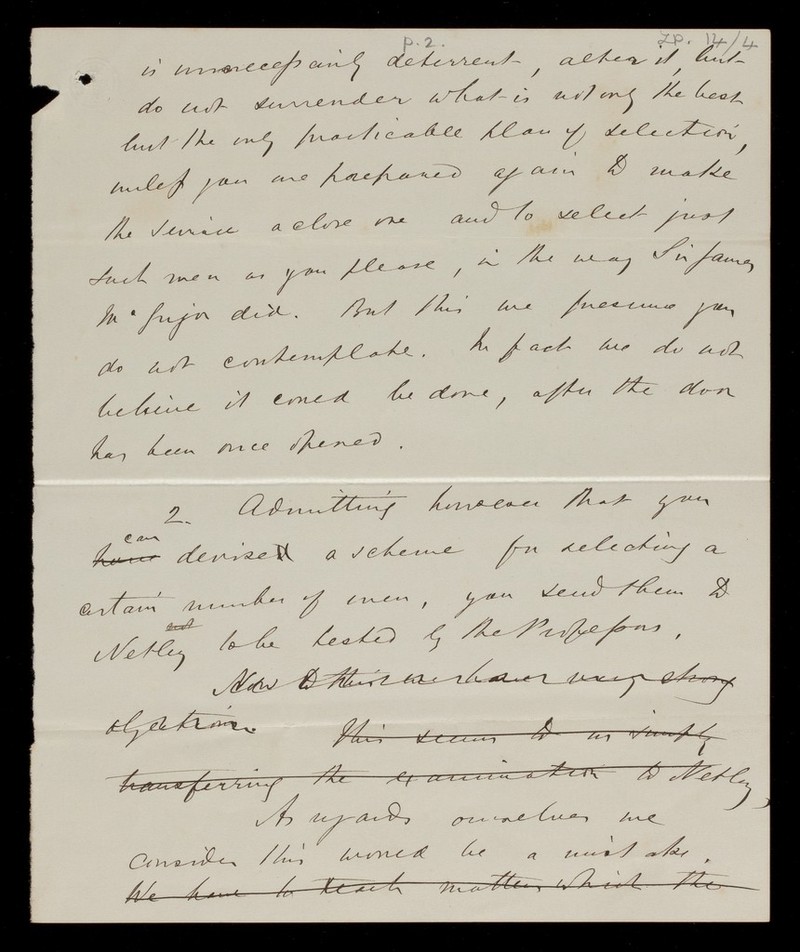 p. 2. LP. 14/4
is unnecessarily deterrent, alter it, but
do not surrender what is not only the best
but the only practicable plan of selection,
unless you are prepared again to make
the service a close one and to select just
such men as you please, in the way Sir James
McGrigor did. But this we presume you
do not contemplate. In fact we do not
believe it could be done, after the door
has been once opened.
2. Admitting however that you
can
have devised a scheme for selecting a
certain number of men, you send them to
Netley to be tested by the Professors.
Now to this we have very strong
objections. This seems to us simply
transferring the examination to Netley,
As regards ourselves we
consider this would be a mistake.
We have to teach matters which the